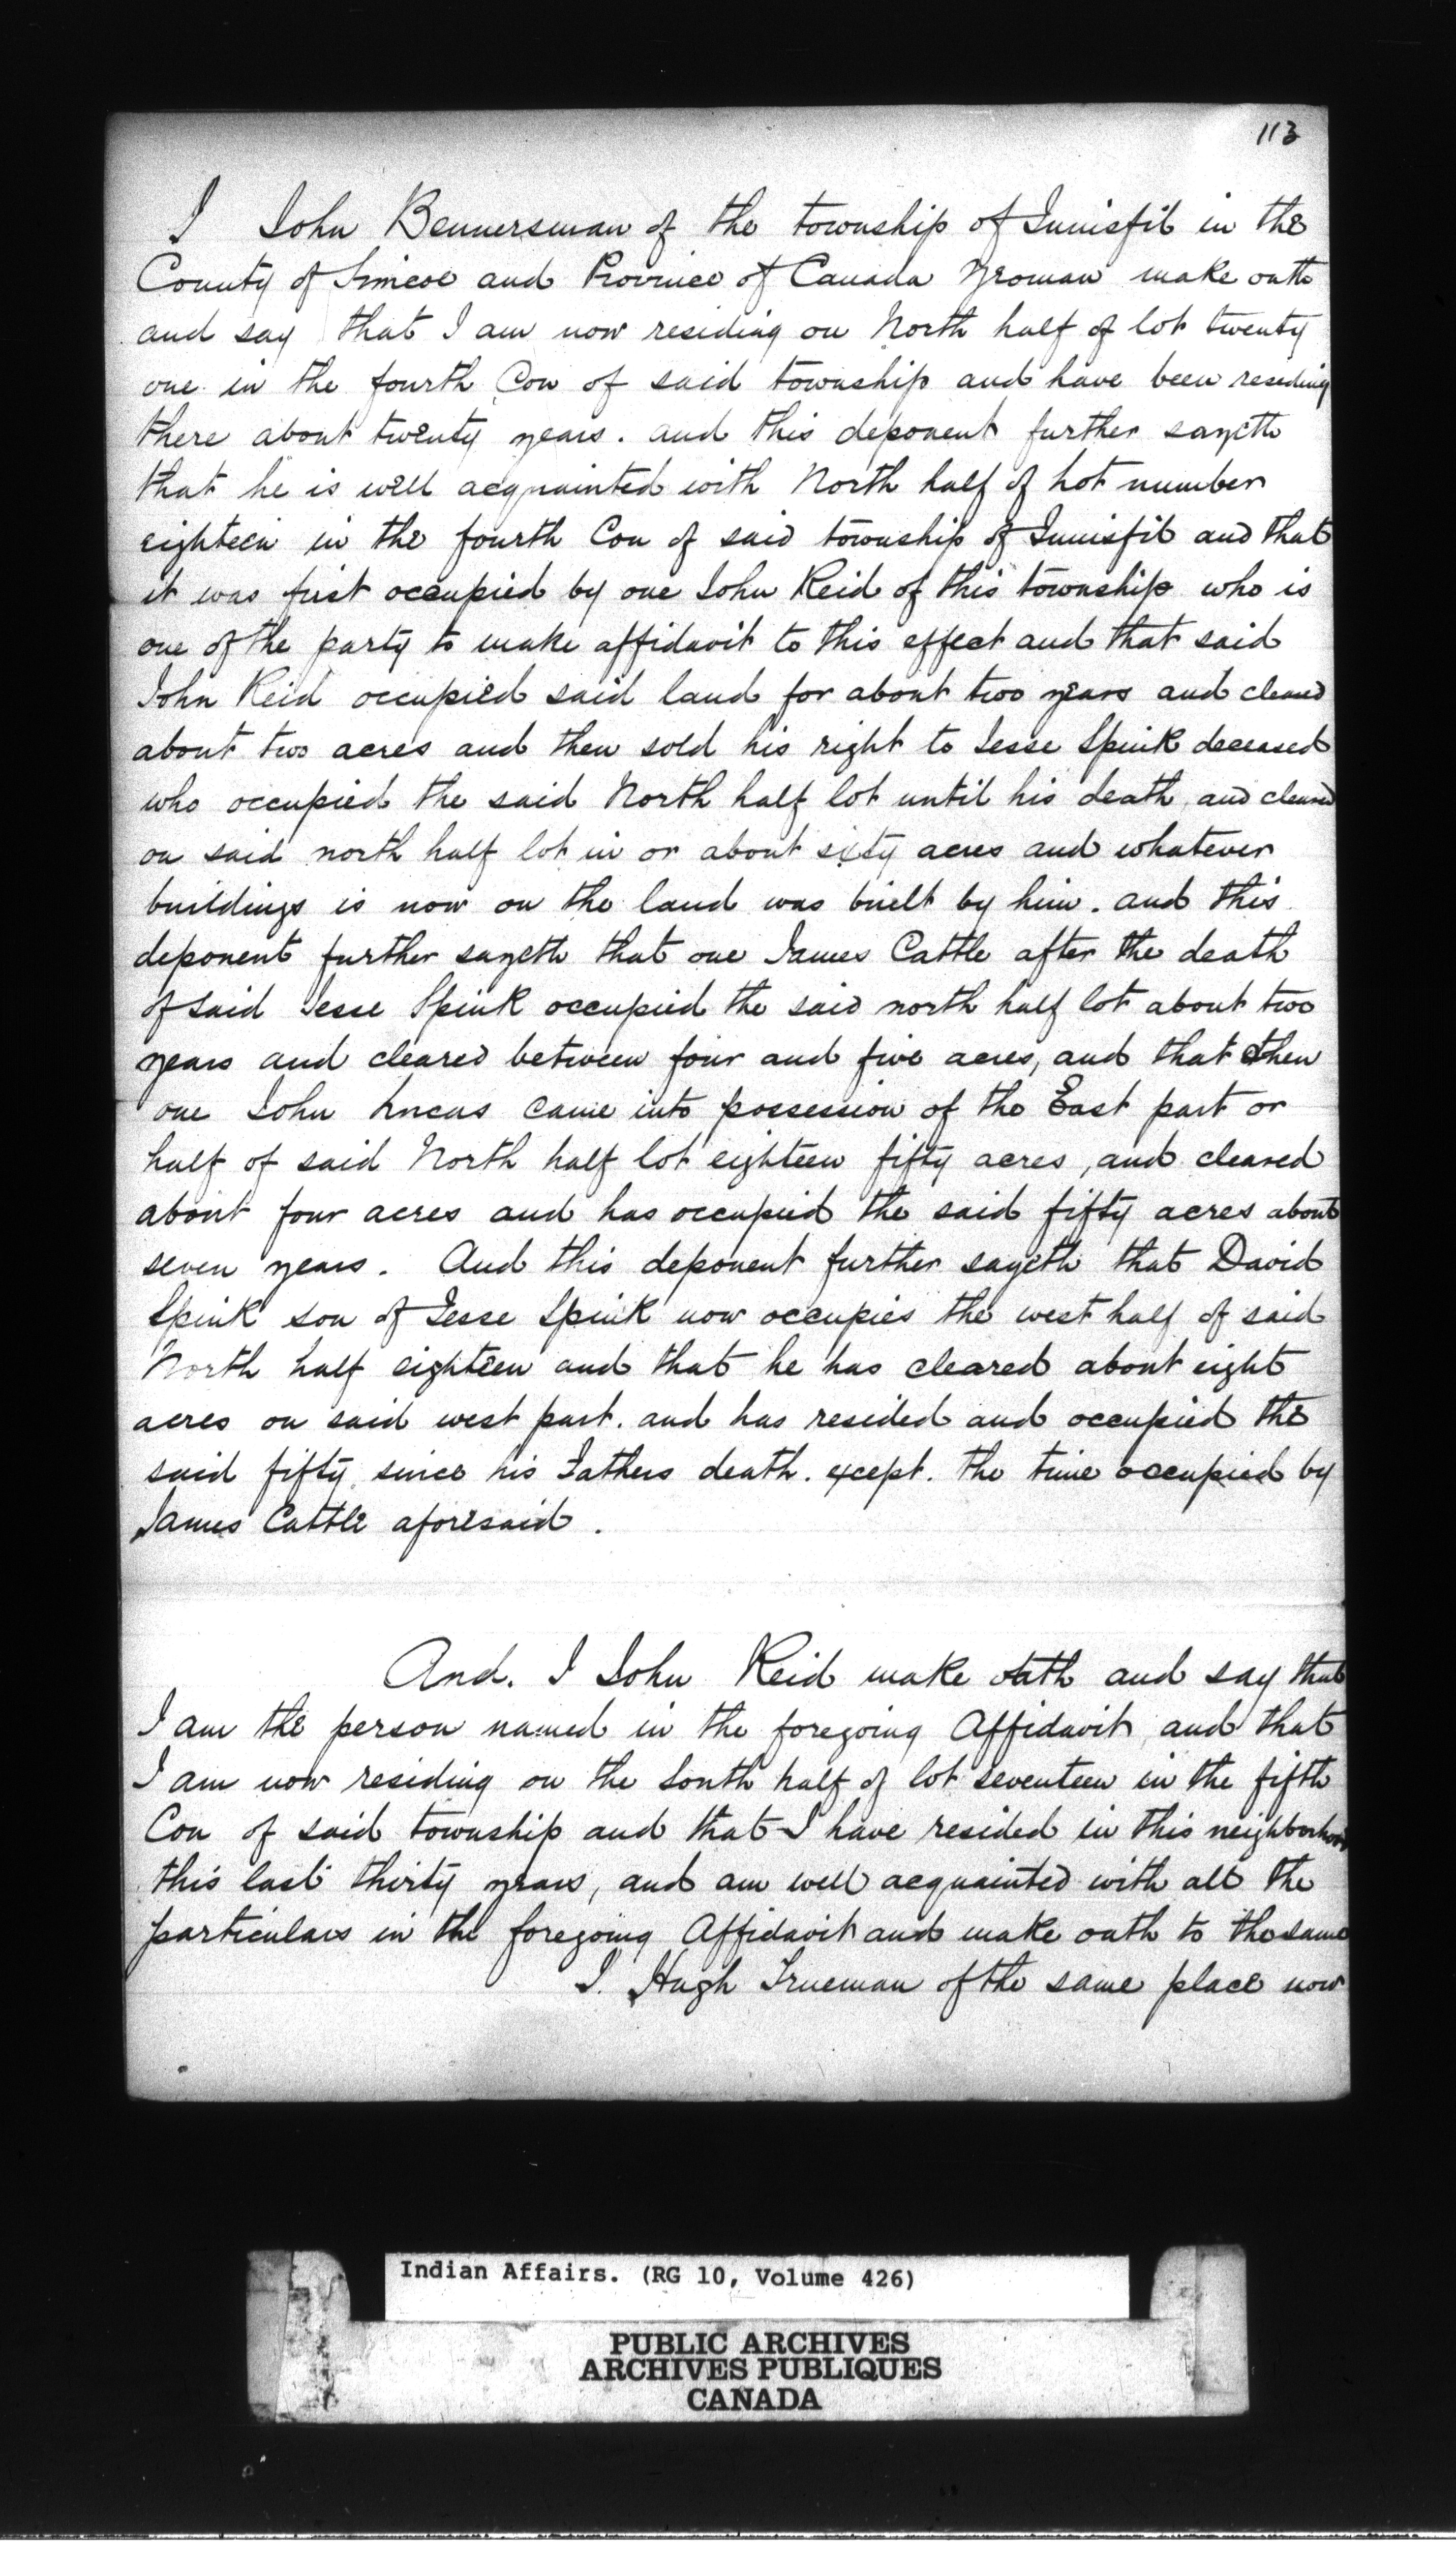 113
I John Bennersman of the township of Innisfil in the
County of Simcoe and Province of Canada Yeoman make oath
and say that I am now residing on North half of lot twenty
one in the fourth Con of said township and have been reseding
there about twenty years. and this deponent further sayeth
that he is well acquainted with North half of Lot number
eighteen in the fourth Con of said township of Innisfil and that
it was first occupied by one John Reid of this township who is
one of the party to make affidavit to this effect and that said
John Reid occupied said land for about two years and cleared
about two acres and then sold his right to Jesse Spink deceased
who occupied the said North half lot until his death and cleared
on said north half lot in or about sixty acres and whatever
buildings is now on the land was built by him. and this
deponent further sayeth that one James Cattle after the death
of said Jesse Spink occupied the said north half lot about two
years and cleared between four and five acres, and that then
one John Lucas came into possession of the East part or
half of said North half lot eighteen fifty acres, and cleared
about four acres and has occupied the said fifty acres about
seven years. And this deponent further sayeth that David
Spink son of Jesse Spink now occupies the west half of said
North half eighteen and that he has cleared about eight
acres on said west part. and has resided and occupied the
said fifty since his Fathers death. except. the time occupied by
James Cattle aforesaid.
And. I John Reid make oath and say that
I am the person named in the foregoing Affidavit and that
I am now residing on the South half of lot seventeen in the fifth
Con of said township and that I have resided in this neighborhood
this last thirty years, and am well acquainted with all the
particulars in the foregoing Affidavit and make oath to the same
I. Hugh Trueman of the same place now
Indian Affairs. (RG 10, Volume 426)
PUBLIC ARCHIVES
ARCHIVES PUBLIQUES
CANADA